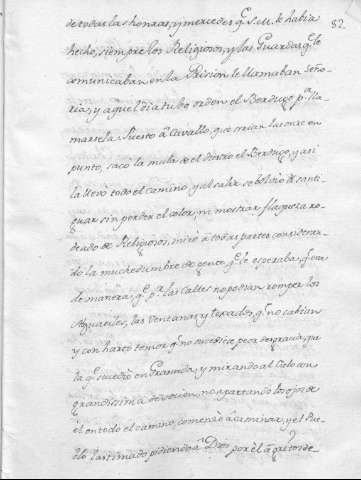 82
de todas las honras, y mercedes q̃ S. M. le habia
hecho, siempre los Religiosos, y las Guardas q̃ le
comunicaban en la Prision le llamaban Seño-
ria, y aquel dia tubo orden el Berdugo pª. lla-
marsela. Puesto à Cavallo, que serian las onze en
punto, sacò la mula de el diestro el Berdugo, y asi
la llevò todo el camino, y al salir se bolviò à santi-
guar sin perder el color, ni mostrar flaqueza ro-
deado de Religiosos, mirò à todas partes consideran-
do la muchedumbre de gente q̃ le esperaba, q̃ era
de manera, q̃ pr. las Calles no podian romper los
Alguaciles, las ventanas, y texados, q̃ no cabian
y con harto temor q̃ no sucediese peor desgracia, que
la q̃ sucediò en Granada, y mirando al Cielo con
grandissima devocion, no apartando los ojos de
el en todo el camino, comenzò à caminar, y el Pue-
blo lastimado pidiendo à Dios por èl à gritos de-